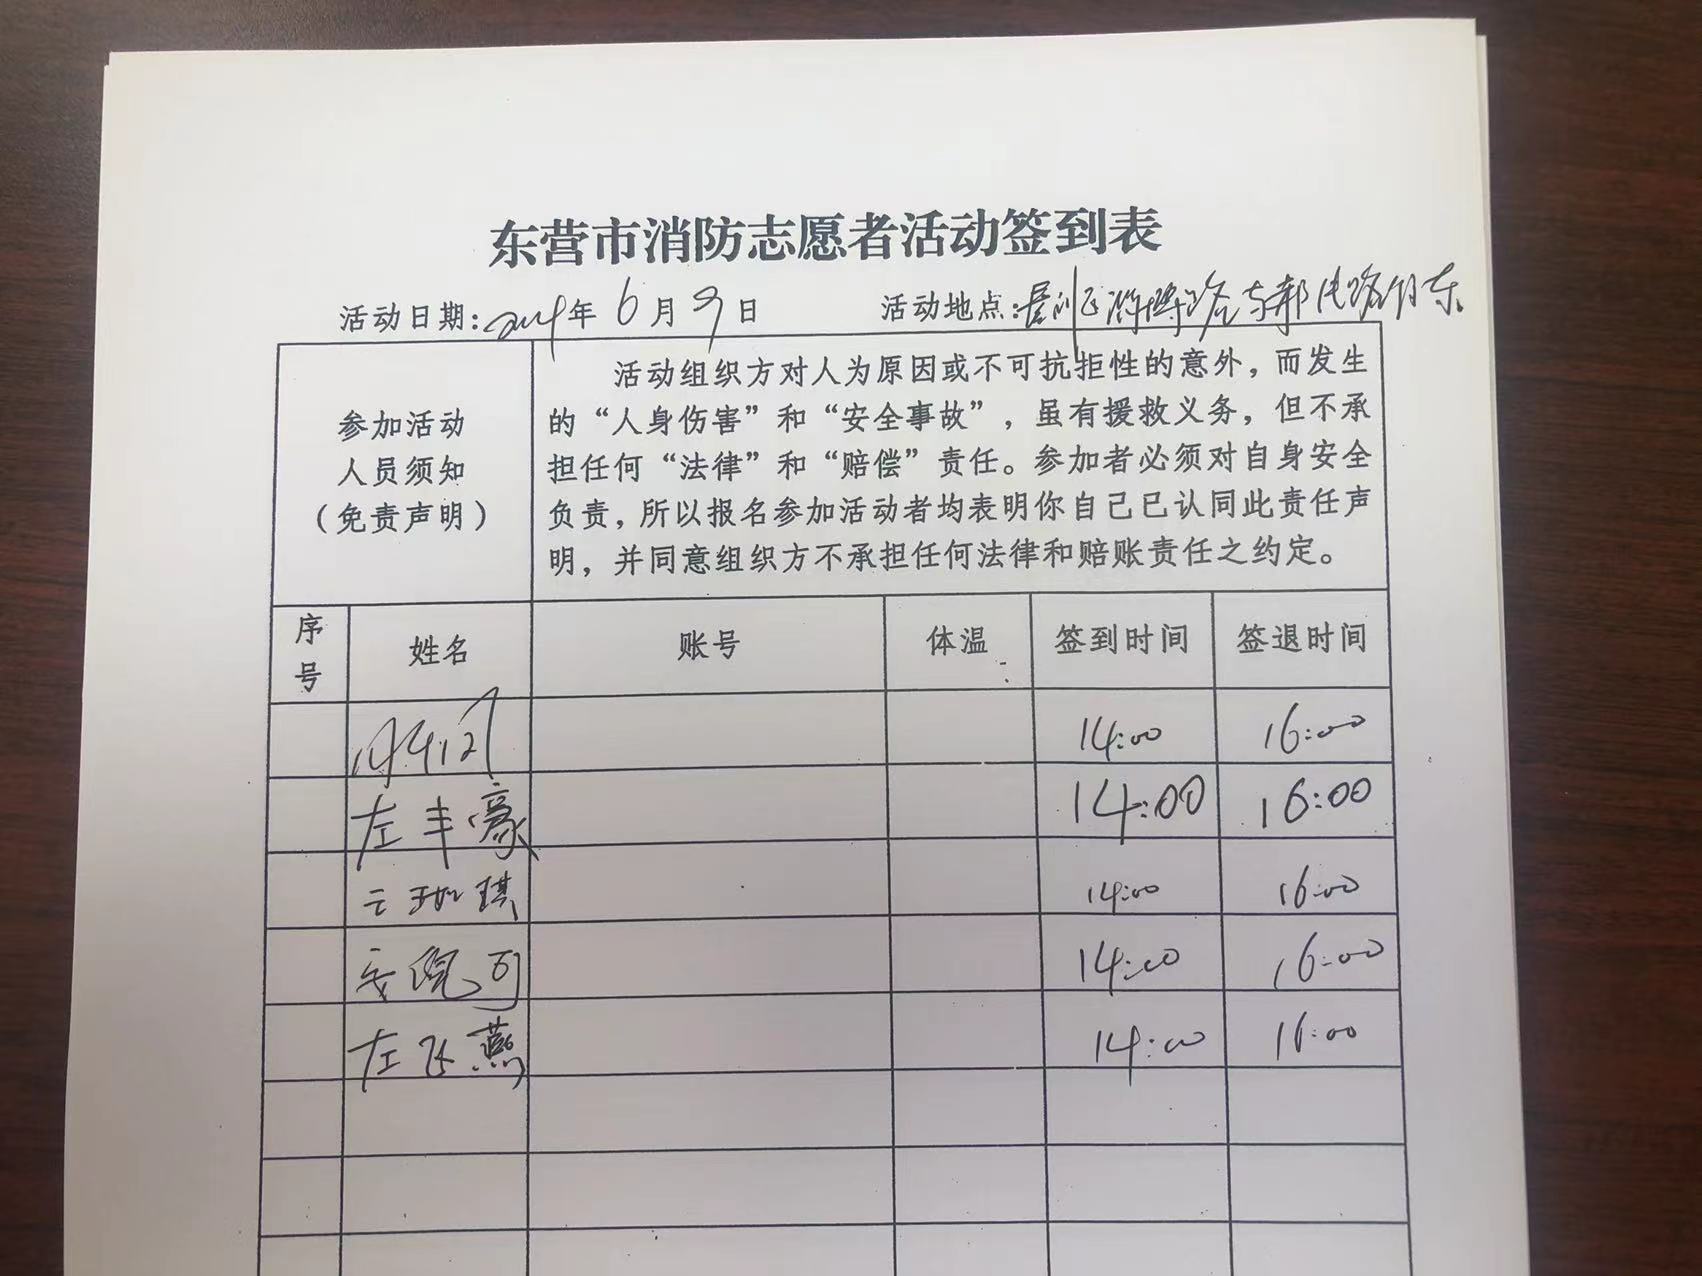 东营市消防志愿者活动签到表
活动日期：2024年6月9日 活动地点：
参加活动
人员须知
（免责声明）
活动组织方对人为原因或不可抗拒性的意外，而发生
的“人身伤害”和“安全事故”，虽有援救义务，但不承
担任何“法律”和“赔偿”责任。参加者必须对自身安全
负责，所以报名参加活动者均表明你自己已认同此责任声
明，并同意组织方不承担任何法律和赔账责任之约定。
序号 姓名 账号 体温 签到时间 签退时间
14:00 16:00
左丰豪 14:00 16:00
14:00 16:00
14:00 16:00
左飞燕 14:00 16:00